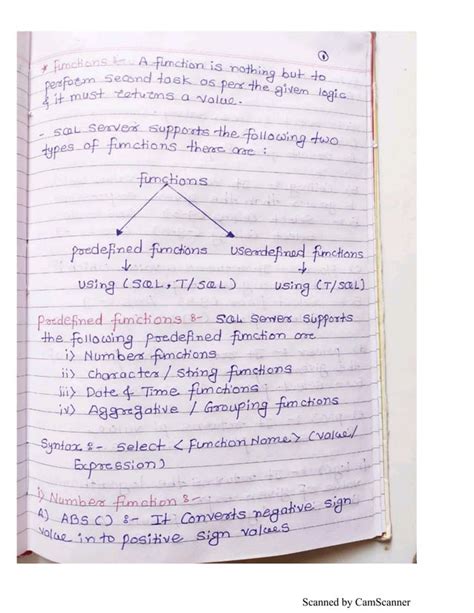 ①
* Functions :- A function is nothing but to
perform second task as per the given logic
& it must returns a value.
- SQL server supports the following two
types of functions there are :
functions
predefined functions userdefined functions
using (SQL, T/SQL) using (T/SQL)
Predefined functions :- SQL Server supports
the following predefined function are
i) Number functions
ii) Character / String functions
iii) Date & Time functions
iv) Aggregative / Grouping functions
Syntax :- select <Function Name> (value/
Expression)
i) Number function :-
A) ABS () :- It Converts negative sign
value in to positive sign values
Scanned by CamScanner